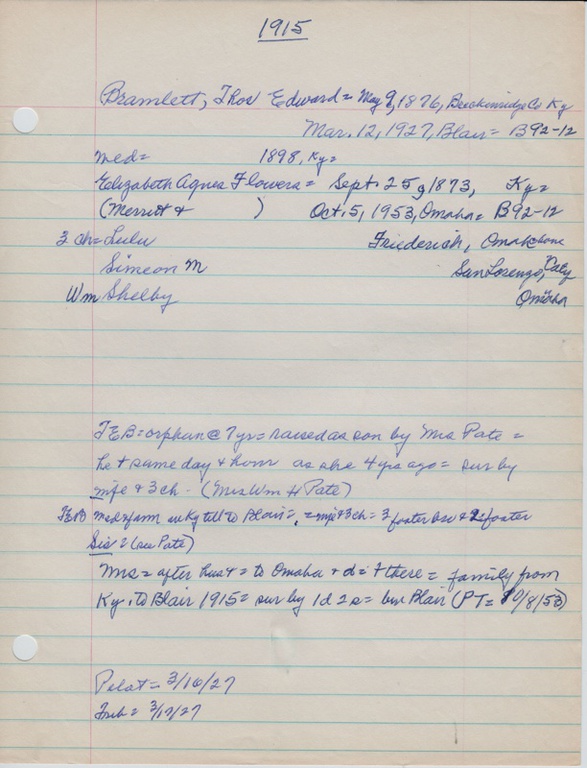 1915
Bramlett, Thos Edward = May 9, 1876, Breckinridge Co Ky
Mar. 12, 1927, Blair = B92-12
med = 1898, Ky =
Elizabeth Agnes Flowers = Sept. 25, 1873, Ky =
(Merritt + ) Oct. 5, 1953, Omaha = B92-12
3 ch = Lulu Friederich, Omaha
Simeon M San Lorenzo,
Wm Shelby Omaha
TEB = orphan @ 7 yr = raised as son by Mrs Pate =
he + same day + hour as she 4 yrs ago = sur by
wife + 3 ch - (Mrs Wm H Pate)
TEB med + farm in Ky till to Blair =, = wife + 3 ch = 3 foster bro + 2 foster
Sis = (see Pate)
Mrs = after hus + = to Omaha + d = + there = family from
Ky. to Blair 1915 = sur by 1 d 2 s = bur Blair (PT = 10/8/53)
Pilot = 3/16/27
Trib = 3/17/27